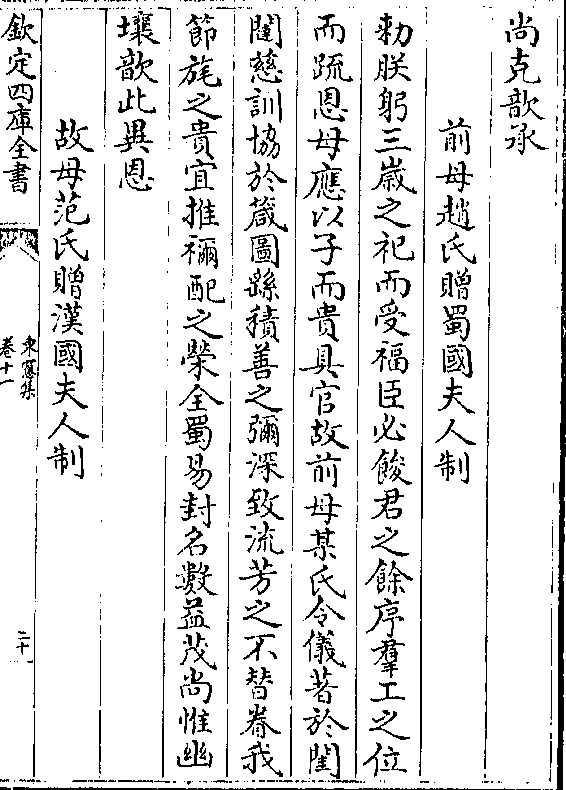 尚克歆承
前母趙氏贈蜀國夫人制
勑朕躬三歲之祀而受福臣必餕君之餘序羣工之位
而疏恩母應以子而貴具官故前母某氏令儀著於閨
閫慈訓協於箴圖繇積善之彌深致流芳之不替眷我
節旄之貴宜推禰配之榮全蜀易封名數益茂尚惟幽
壤歆此異恩
故母范氏贈漢國夫人制
欽定四庫全書
東窻集
卷十一
二十